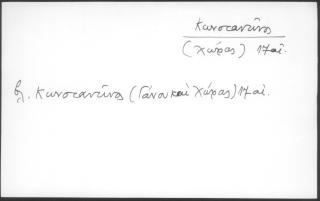 Κωνσταντῖνος
(Χώρας) 17 αἰ.
βλ. Κωνσταντῖνος (Γάνου καὶ Χώρας) 17 αἰ.